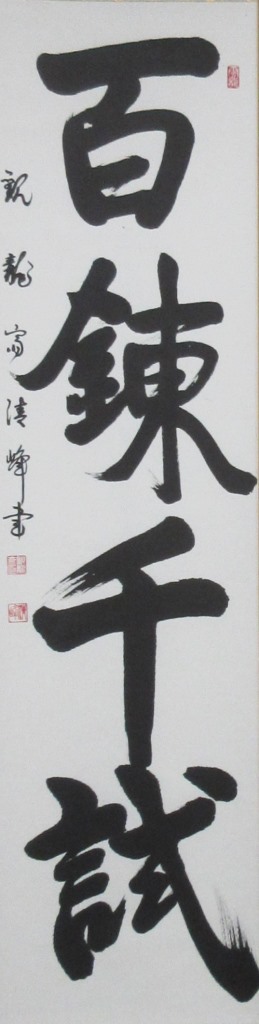 百錬千試
観龍窟清峰書